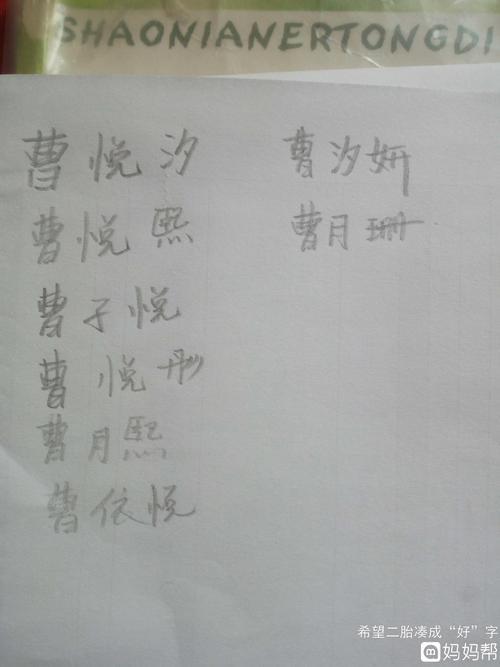 SHAONIANERTONGDI
曹悦汐
曹悦熙
曹子悦
曹悦彤
曹月熙
曹依悦
曹汐妍
曹月珊
希望二胎凑成“好”字
妈妈帮